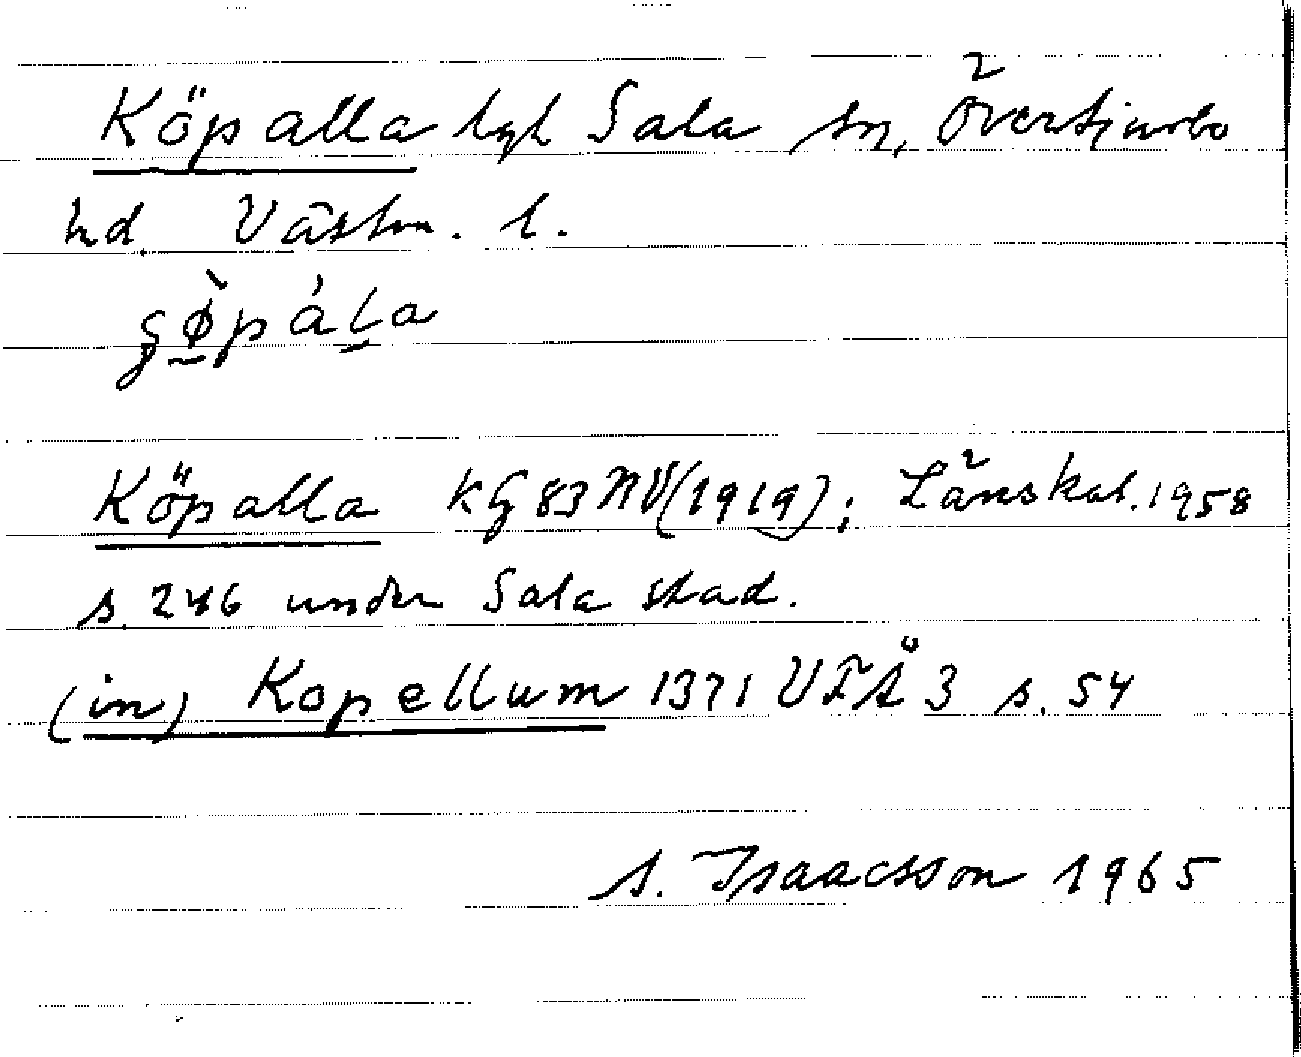 Köpalla lgh Sala sn, Övertjurbo
hd. Västm. l.
Köpalla KG 83 NV (1919); Länskal. 1958
s. 246 under Sala stad.
(in) Kopellum 1371 VFÅ 3 s. 54
S. Isaacsson 1965